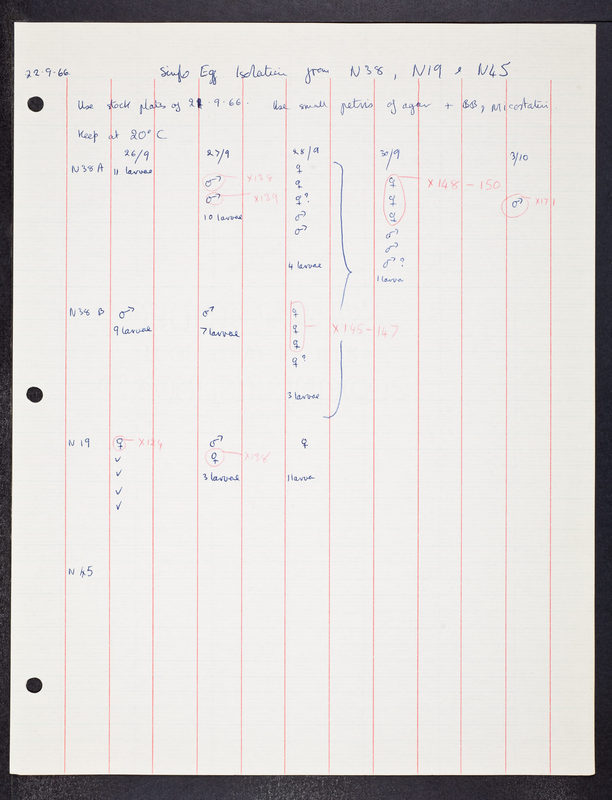 22.9.66 Single Egg Isolation from N38, N19 & N45
Use stock plates of 22.9.66. Use small petris of agar + BB, mycostatin.
Keep at 20°C
26/9 27/9 28/9 30/9 3/10
N38 A 11 larvae ♀
♂ X138 ♀ ♀ X148 - 150
♂ X139 ♀? ♀ ♂ X171
10 larvae ♂ ♀
♂ ♂
♂
4 larvae ♂?
1 larva
N38 B ♂ ♂ ♀
9 larvae 7 larvae ♀ X145-147
♀
♀?
3 larvae
N19 ♀ X124 ♂ ♀
✓ ♀ X136
✓ 3 larvae 1 larva
✓
✓
N 45